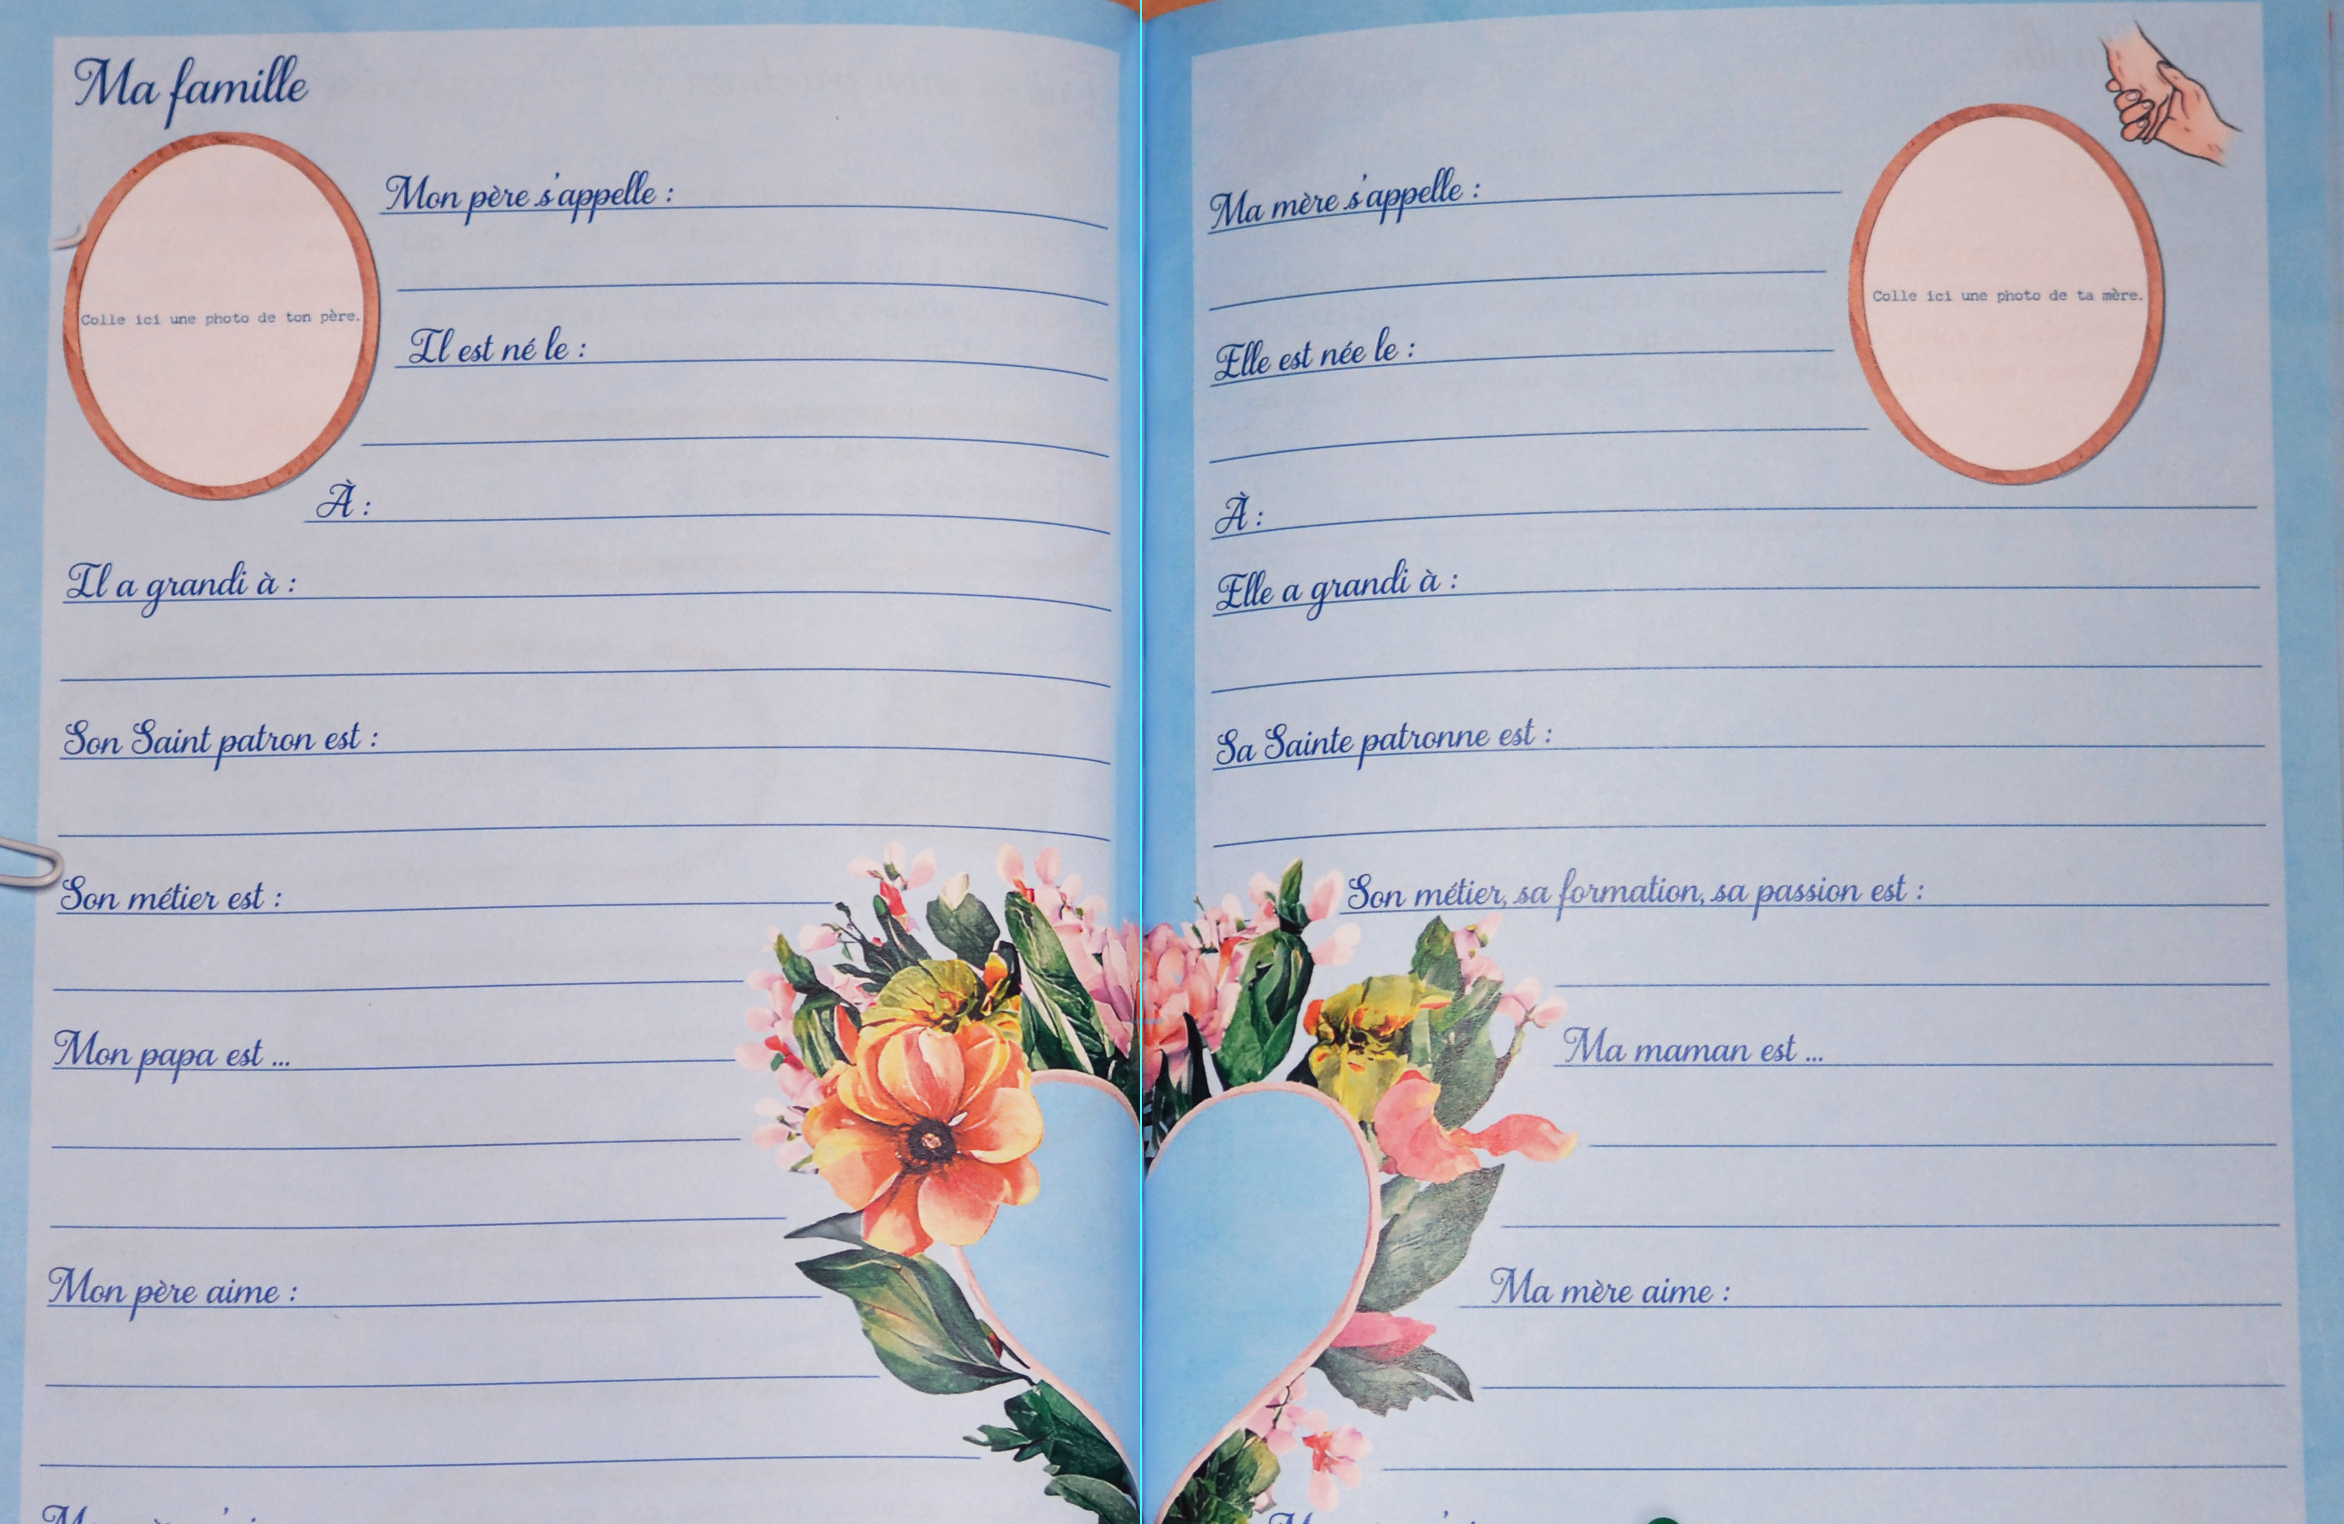 Ma famille
Colle ici une photo de ton père.
Mon père s'appelle :
Il est né le :
À :
Il a grandi à :
Son Saint patron est :
Son métier est :
Mon papa est ...
Mon père aime :
Ma mère s'appelle :
Colle ici une photo de ta mère.
Elle est née le :
À :
Elle a grandi à :
Sa Sainte patronne est :
Son métier, sa formation, sa passion est :
Ma maman est ...
Ma mère aime :